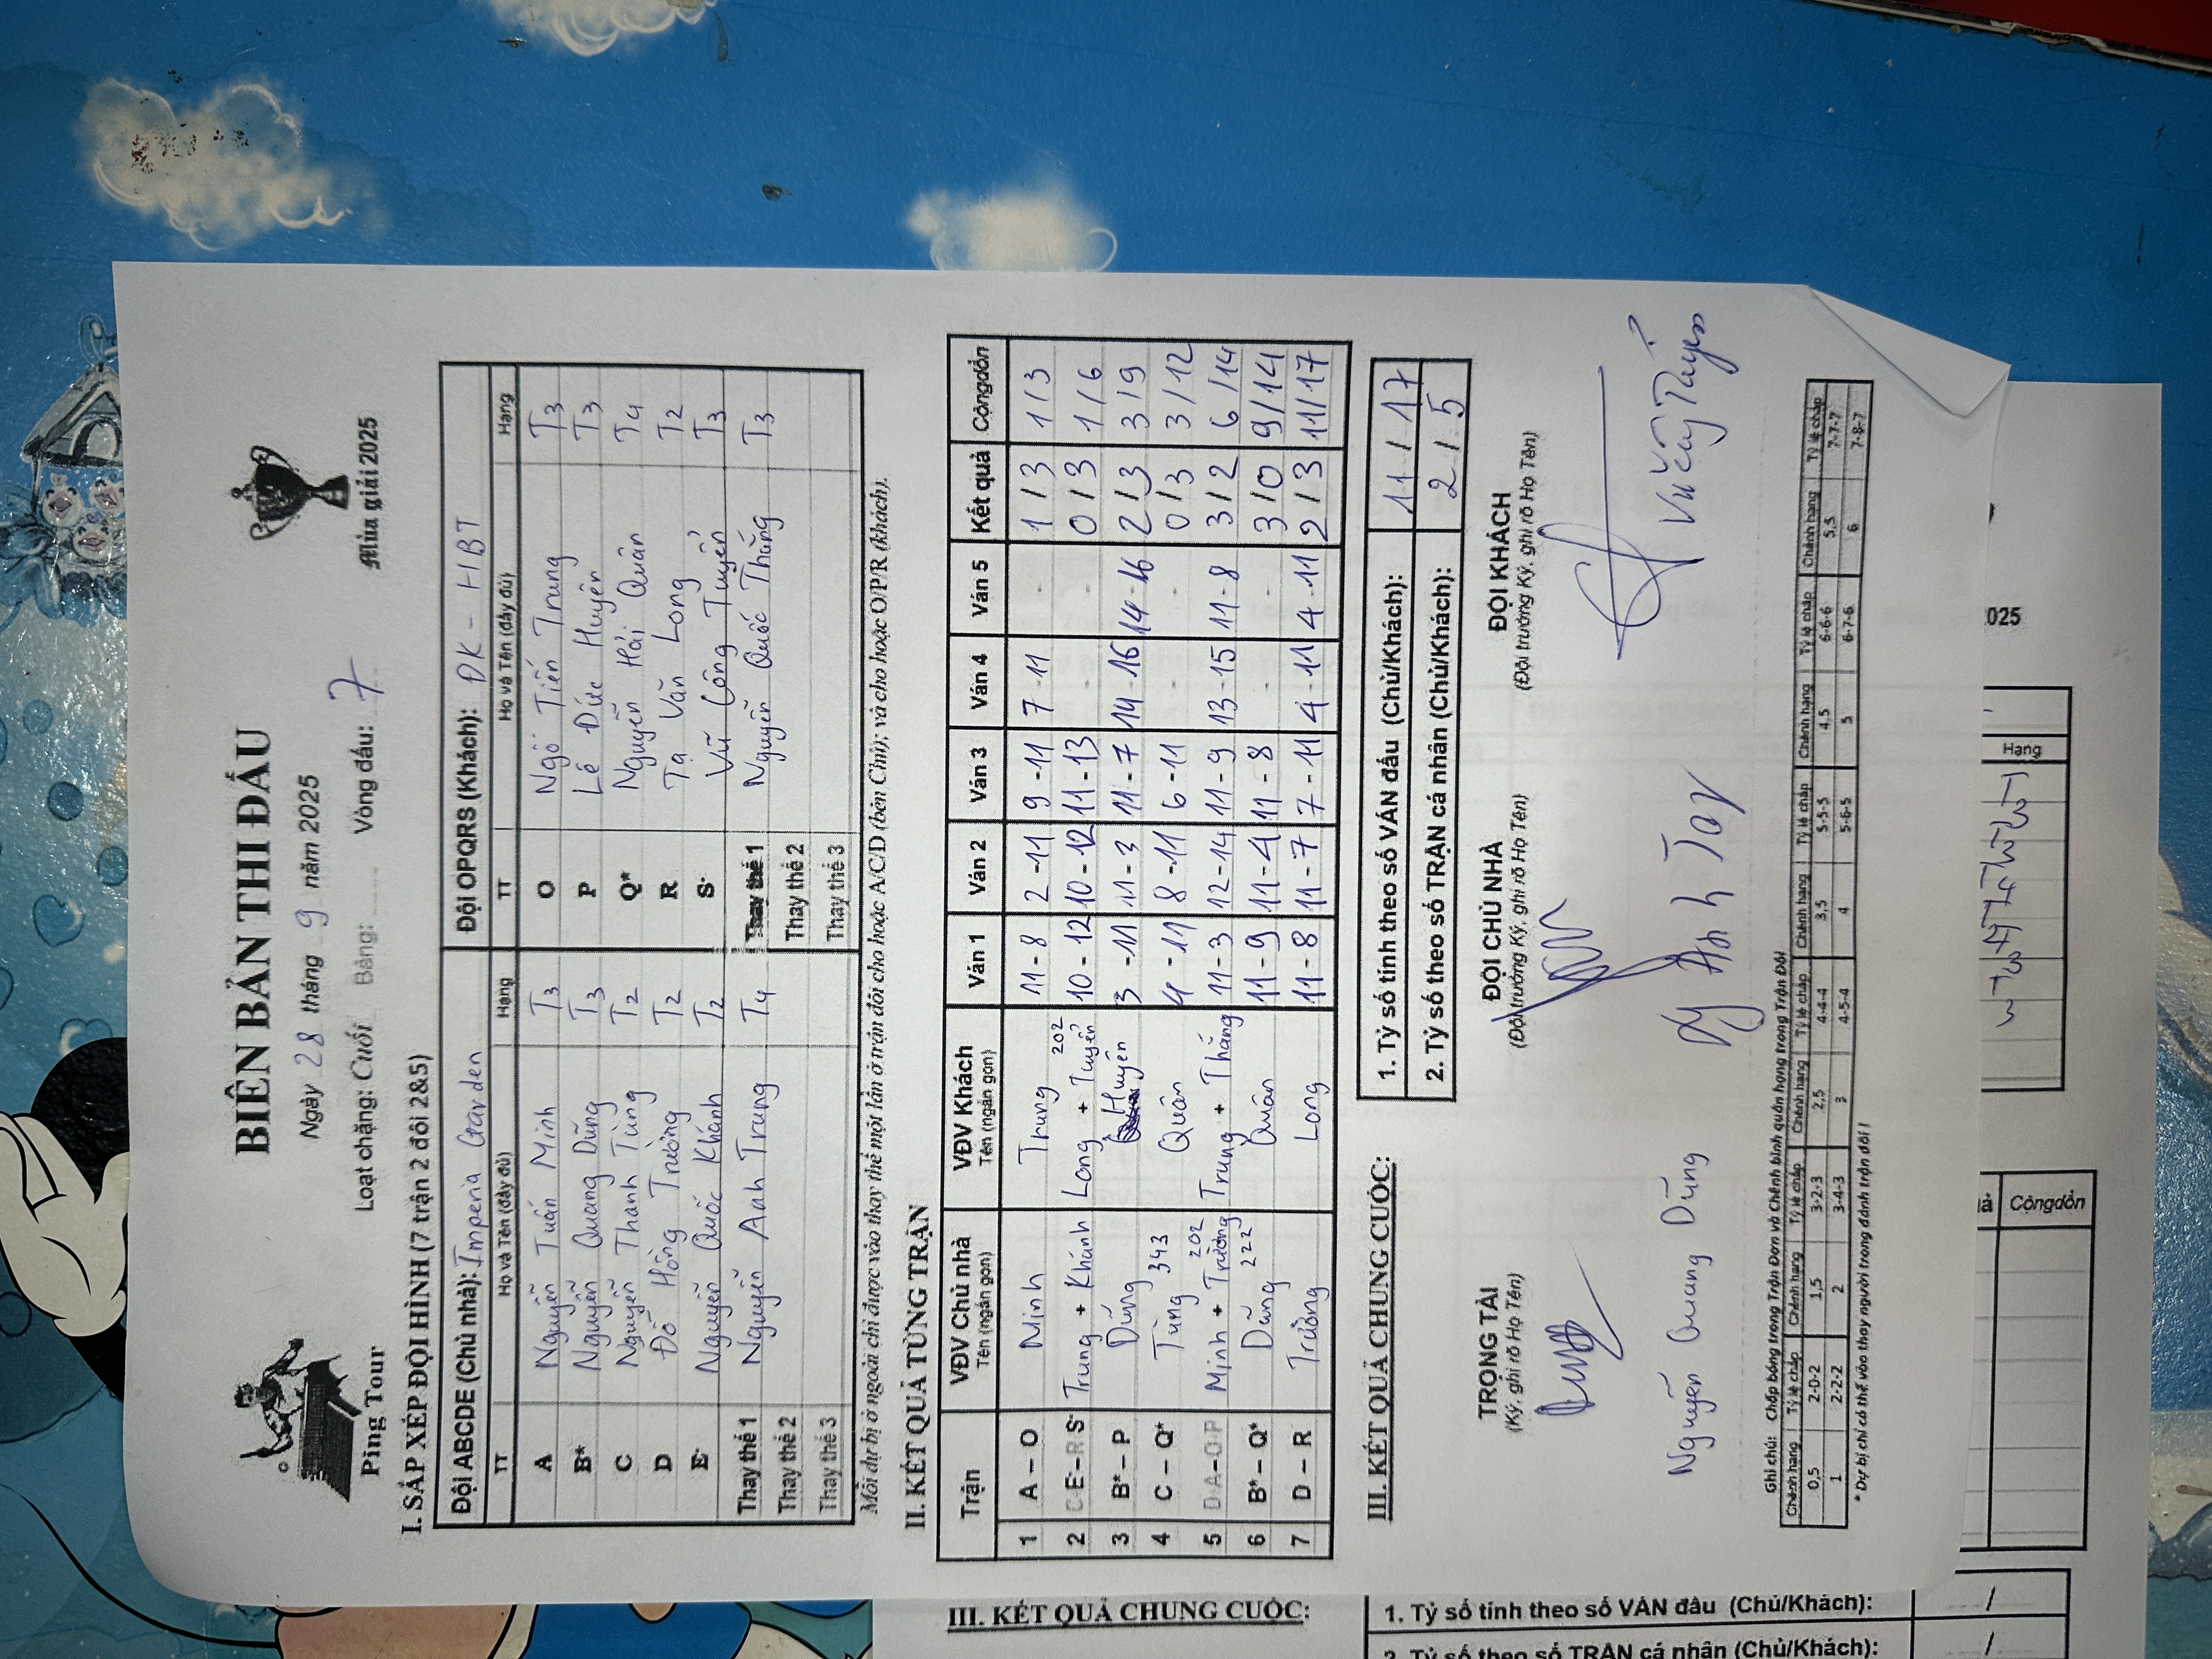 BIÊN BẢN THI ĐẤU
Ngày 28 tháng 9 năm 2025
Ping Tour
Loạt chặng: Cuối Bảng: .... Vòng đấu: 7
Mùa giải 2025
I. SẮP XẾP ĐỘI HÌNH (7 trận 2 đôi 2&5)
Đội ABCDE (Chủ nhà): Imperia Garden Đội OPQRS (Khách): ĐK - HBT
TT Họ và Tên (đầy đủ) Hạng TT Họ và Tên (đầy đủ) Hạng
A Nguyễn Tuấn Minh T3 O Ngô Tiến Trung T3
B* Nguyễn Quang Dũng T3 P Lê Đức Huyên T3
C Nguyễn Thanh Tùng T2 Q* Nguyễn Hải Quân T4
D Đỗ Hồng Trường T2 R Tạ Văn Long T2
E· Nguyễn Quốc Khánh T2 S· Vũ Công Tuyển T3
Thay thế 1 Nguyễn Anh Trung T4 Thay thế 1 Nguyễn Quốc Thắng T3
Thay thế 2 Thay thế 2
Thay thế 3 Thay thế 3
Mỗi dự bị ở ngoài chỉ được vào thay thế một lần ở trận đôi cho hoặc A/C/D (bên Chủ); và cho hoặc O/P/R (khách).
II. KẾT QUẢ TỪNG TRẬN
Trận VĐV Chủ nhà Tên (ngắn gọn) VĐV Khách Tên (ngắn gọn) Ván 1 Ván 2 Ván 3 Ván 4 Ván 5 Kết quả Cộngdồn
1 A – O Minh Trung 11 - 8 2 - 11 9 - 11 7 - 11 - 1 / 3 1 / 3
2 C E· – R S· Trung + Khánh Long + Tuyển 202 10 - 12 10 - 12 11 - 13 - - 0 / 3 1 / 6
3 B* – P Dũng Huyên 3 - 11 11 - 3 11 - 7 14 - 16 14 - 16 2 / 3 3 / 9
4 C – Q* Tùng 343 Quân 4 - 11 8 - 11 6 - 11 - - 0 / 3 3 / 12
5 D A – O P Minh + Trường 202 Trung + Thắng 11 - 3 12 - 14 11 - 9 13 - 15 11 - 8 3 / 2 6 / 14
6 B* – Q* Dũng 222 Quân 11 - 9 11 - 4 11 - 8 - - 3 / 0 9 / 14
7 D – R Trường Long 11 - 8 11 - 7 7 - 11 4 - 11 4 - 11 2 / 3 11 / 17
III. KẾT QUẢ CHUNG CUỘC:
1. Tỷ số tính theo số VÁN đấu (Chủ/Khách): 11 / 17
2. Tỷ số theo số TRẬN cá nhân (Chủ/Khách): 2 / 5
TRỌNG TÀI ĐỘI CHỦ NHÀ ĐỘI KHÁCH
(Ký, ghi rõ Họ Tên) (Đội trưởng Ký, ghi rõ Họ Tên) (Đội trưởng Ký, ghi rõ Họ Tên)
Nguyễn Quang Dũng
Ghi chú: Chấp bóng trong Trận Đơn và Chênh bình quân hạng trong Trận Đôi
Chênh hạng Tỷ lệ chấp Chênh hạng Tỷ lệ chấp Chênh hạng Tỷ lệ chấp Chênh hạng Tỷ lệ chấp Chênh hạng Tỷ lệ chấp Chênh hạng Tỷ lệ chấp
0,5 2-0-2 1,5 3-2-3 2,5 4-4-4 3,5 5-5-5 4,5 6-6-6 5,5 7-7-7
1 2-2-2 2 3-4-3 3 4-5-4 4 5-6-5 5 6-7-6 6 7-8-7
* Dự bị chỉ có thể vào thay người trong đánh trận đôi !
025
Hạng
Cộngdồn
III. KẾT QUẢ CHUNG CUỘC:
1. Tỷ số tính theo số VÁN đấu (Chủ/Khách): /
2. Tỷ số theo số TRẬN cá nhân (Chủ/Khách): /